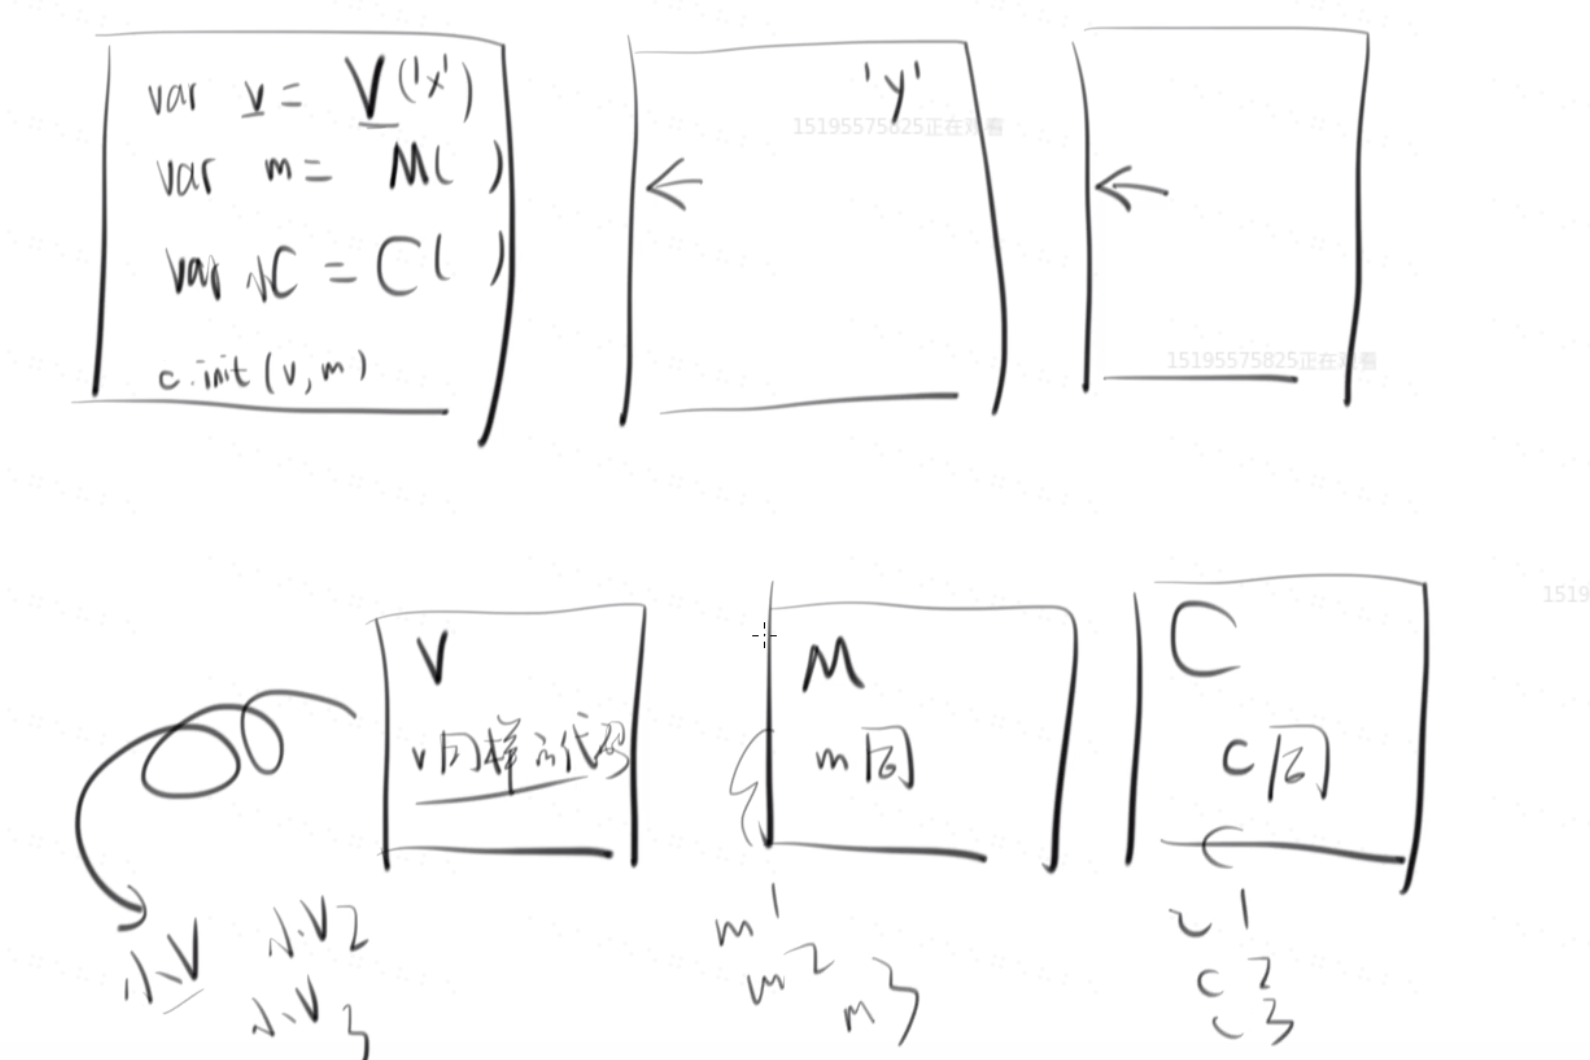 var v = V('x')
var m = M( )
var 小C = C( )
c.init(v,m)
'y'
15195575825正在观看
15195575825正在观看
1519
V
v同样的代码
M
m同
C
c同
小V
小V2
小V3
m1
m2
m3
c1
c2
c3